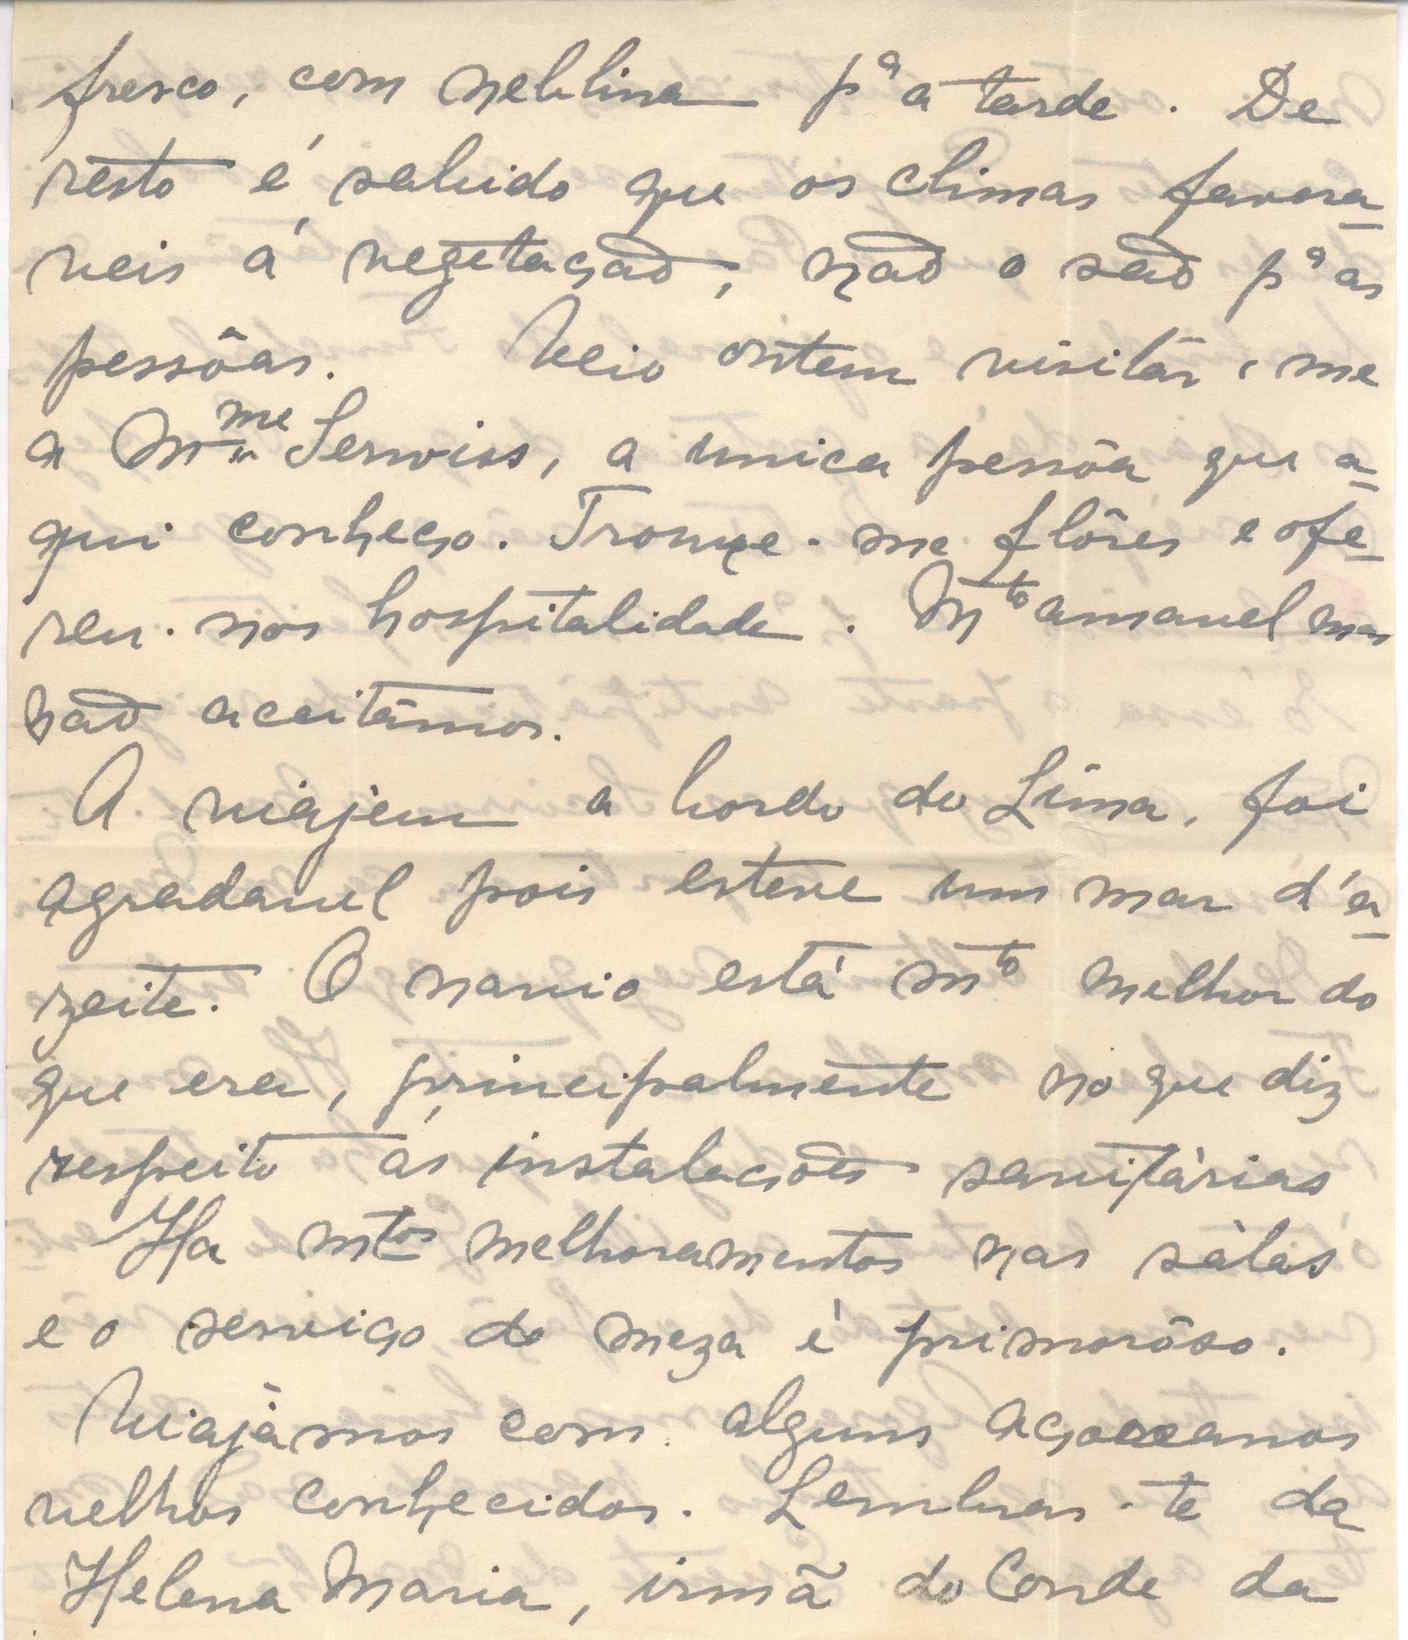 fresco, com neblina pª a tarde. De
resto é sabido que os climas favora-
veis á vegetação, não o são pª as
pessôas. Veio ontem visitár-me
a Mme Serviss, a unica pessôa que a-
qui conheço. Trouxe-me flôres e ofe-
receu-nos hospitalidade. Mto amavel mas
não aceitámos.
A viajem a bordo do Lima, foi
agradavel pois esteve um mar d'a-
zeite. O navio está mto melhor do
que era, principalmente no que diz
respeito ás instalações sanitárias
Ha mtos melhoramentos nas sálas
e o serviço de meza é primorôso.
Viajámos com alguns açoreanos
velhos conhecidos. Lembras-te da
Helena Maria, irmã do Conde da